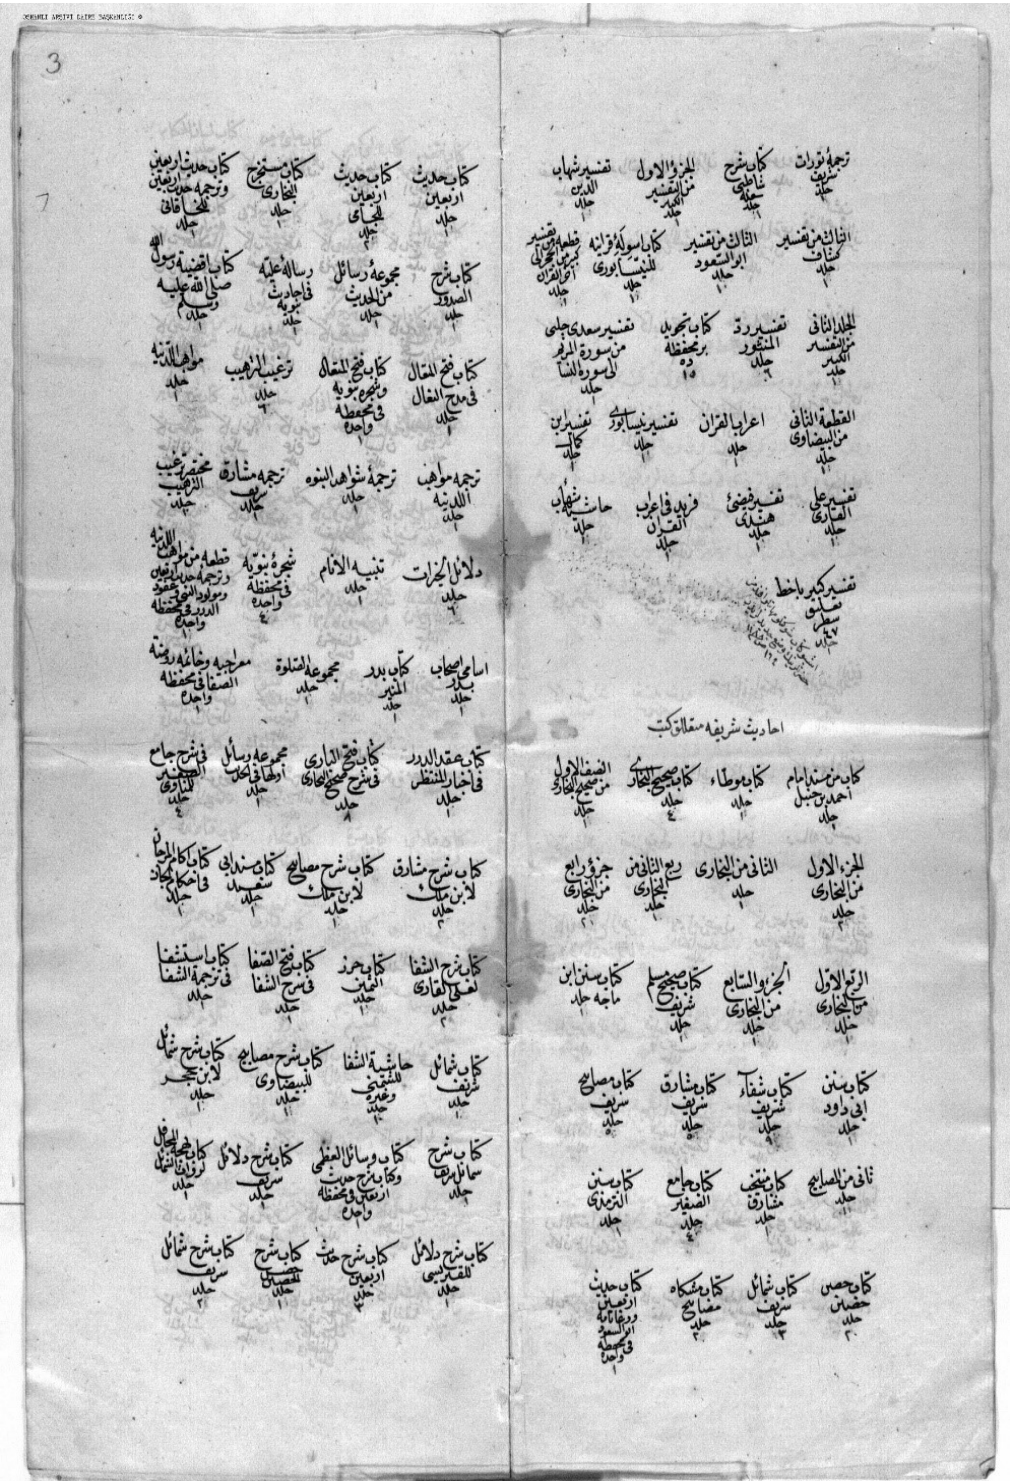 OSMANLI ARŞİVİ DAİRE BAŞKANLIĞI ©
3
ترجمهٔ تورات شریف جلد ١
کتاب شرح شاطبی جلد ١
الجزؤ الاول من التفسیر الکبیر جلد ١
تفسیر شهاب الدین جلد ١
الثالث من تفسیر کشاف جلد ١
الثالث من تفسیر ابو السعود جلد ١
کتاب اسولهٔ قرانیه جلد ١
الجلد الثانی من التفسیر الکبیر جلد ١
تفسیر درّ المنثور جلد ٦
کتاب تجوید بر محفظه ده ١٥
تفسیر سعدی چلبی من سورة المریم الی سورة النسا جلد ١
القطعة الثانی من البیضاوی جلد ١
اعراب القران جلد ١
تفسیر نیسابوری جلد ١
تفسیر ابن کمال جلد ١
تفسیر علی القاری جلد ١
تفسیر فیضئ هندی جلد ١
فرید فی اعراب القران جلد ١
حاشیهٔ شهاب جلد ١
تفسیر کبیر باخط تعلیق سطر ٤٧ جلد
احادیث شریفه متعلق کتب
کتاب من مسند امام احمد بن حنبل جلد ١
کتاب موطاء جلد ١
کتاب صحیح البخاری جلد ٤
النصف الاول من صحیح البخاری جلد ١
الجزء الاول من البخاری جلد ٢
الثانی من البخاری جلد ١
ربع الثانی من البخاری جلد ١
جزؤ رابع من البخاری جلد ٢
الربع الاوّل من البخاری جلد ١
الجزؤ السّابع من البخاری جلد ١
کتاب صحیح مسلم شریف جلد ١
کتاب سنن ابن ماجه جلد ١
کتاب سنن ابی داود جلد ١
کتاب شفآء شریف جلد ٩
کتاب مشارق شریف جلد ٥
کتاب مصابیح شریف جلد ٥
ثانی من المصابیح جلد ١
کتاب منتخب مشارق جلد ١
کتاب جامع الصغیر جلد ٤
کتاب سنن الترمذی جلد ١
کتاب حصن حصین جلد ٢٠
کتاب شمائل شریف جلد ٣
کتاب مشکاه مصابیح جلد ٢
کتاب حدیث اربعین ابو السعود فی محفظه واحده ١
کتاب حدیث اربعین جلد ١
کتاب حدیث اربعین للجامی جلد ٢
کتاب مستخرج البخاری جلد ١
کتاب حدیث اربعین وترجمه حدیث اربعین للخاقانی جلد ١
کتاب شرح الصدور جلد ١
مجموعهٔ رسائل من الحدیث جلد ١
رسالهٔ علیه فی احادیث نبویه جلد ١
کتاب اقضیة رسول الله صلی الله علیه وسلم جلد ١
کتاب فتح المتعال فی مدح النعال جلد ١
کتاب فتح المتعال وشجره نبویه فی محفظه واحده ١
ترغیب الترهیب جلد ٦
مواهب اللدنیه جلد ١
ترجمه مواهب اللدنیه جلد ١
ترجمهٔ شواهد النبوه جلد ١
ترجمه مشارق شریف جلد ١
مختصر ترغیب الترهیب جلد ١
دلائل الخیرات جلد ٦
تنبیه الانام جلد ١
شجرهٔ نبویّه فی محفظه واحده ٤
قطعه من مواهب اللدنیه وترجمه حدیث اربعین ومولود النبی وعقود الدرر فی محفظه واحده ١
اسامئ اصحاب بدر جلد ١
کتاب بدر المنیر جلد ١
مجموعة الصلوة جلد ١
معراجیه وخاتمه روضة الصفا فی محفظه واحده ١
کتاب عقد الدرر فی اخبار المنتظر جلد ١
کتاب فتح الباری فی شرح صحیح البخاری جلد ٨
مجموعه رسائل اولها فی الحدیث جلد ١
فی شرح جامع الصغیر للمناوی جلد ٤
کتاب شرح مشارق لابن ملک جلد ٢
کتاب شرح مصابیح لابن ملک جلد ١
کتاب مسند ابی سعید جلد ١
کتاب آکام المرجان فی احکام الجان جلد ١
کتاب شرح الشفا لعلی القاری جلد ٢
کتاب حرز الثمین جلد ١
کتاب فتح الصفا فی شرح الشفا جلد ١
کتاب استشفا فی ترجمة الشفا جلد ١
کتاب شمائل شریف جلد ١
حاشیة الشفا للشمنی وغیره جلد ١
کتاب شرح مصابیح للبیضاوی جلد ١
کتاب شرح شمائل لابن حجر جلد ١
کتاب شرح شمائل شریف جلد ١
کتاب وسائل العظمی وکتاب شرح حدیث اربعین فی محفظه واحده ١
کتاب شرح دلائل شریف جلد ١
کتاب شرح دلائل جلد ١
کتاب شرح حدیث اربعین جلد ٣
کتاب شرح حصن الحصین جلد ١
کتاب شرح شمائل شریف جلد ٢